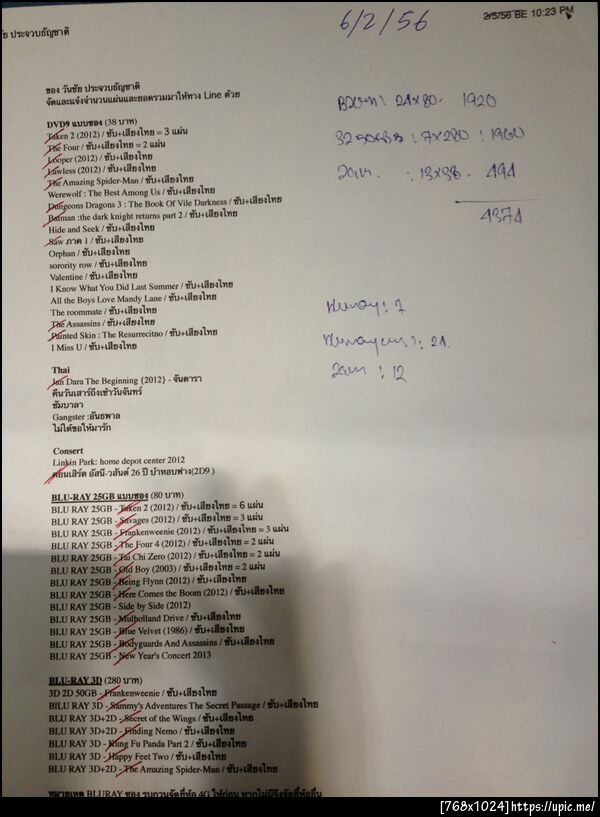 ชัย ประจวบธัญชาติ
6/2/56
2/5/56 BE 10:23 PM
ของ วันชัย ประจวบธัญชาติ
จัดและแจ้งจำนวนแผ่นและยอดรวมมาให้ทาง Line ด้วย
DVD9 แบบซอง (38 บาท)
Taken 2 (2012) / ซับ+เสียงไทย = 3 แผ่น
The Four / ซับ+เสียงไทย = 2 แผ่น
Looper (2012) / ซับ+เสียงไทย
Lawless (2012) / ซับ+เสียงไทย
The Amazing Spider-Man / ซับ+เสียงไทย
Werewolf : The Best Among Us / ซับ+เสียงไทย
Dungeons Dragons 3 : The Book Of Vile Darkness / ซับ+เสียงไทย
Batman :the dark knight returns part 2 / ซับ+เสียงไทย
Hide and Seek / ซับ+เสียงไทย
Saw ภาค 1 / ซับ+เสียงไทย
Orphan / ซับ+เสียงไทย
sorority row / ซับ+เสียงไทย
Valentine / ซับ+เสียงไทย
I Know What You Did Last Summer / ซับ+เสียงไทย
All the Boys Love Mandy Lane / ซับ+เสียงไทย
The roommate / ซับ+เสียงไทย
The Assassins / ซับ+เสียงไทย
Painted Skin : The Resurrecitno / ซับ+เสียงไทย
I Miss U / ซับ+เสียงไทย
24x80. 1920
7x280 : 1960
: 13x38. 494
4374
: 7
: 24.
: 12
Thai
Jan Dara The Beginning {2012} - จันดารา
คืนวันเสาร์ถึงเช้าวันจันทร์
ชัมบาลา
Gangster :อันธพาล
ไม่ได้ขอให้มารัก
Consert
Linkin Park: home depot center 2012
คอนเสิร์ต อัสนี-วสันต์ 26 ปี บ้าหอบฟาง(2D9 )
BLU-RAY 25GB แบบซอง (80 บาท)
BLU RAY 25GB - Taken 2 (2012) / ซับ+เสียงไทย = 6 แผ่น
BLU RAY 25GB - Savages (2012) / ซับ+เสียงไทย = 3 แผ่น
BLU RAY 25GB - Frankenweenie (2012) / ซับ+เสียงไทย = 3 แผ่น
BLU RAY 25GB - The Four 4 (2012) / ซับ+เสียงไทย = 2 แผ่น
BLU RAY 25GB - Tai Chi Zero (2012) / ซับ+เสียงไทย = 2 แผ่น
BLU RAY 25GB - Old Boy (2003) / ซับ+เสียงไทย = 2 แผ่น
BLU RAY 25GB - Being Flynn (2012) / ซับ+เสียงไทย
BLU RAY 25GB - Here Comes the Boom (2012) / ซับ+เสียงไทย
BLU RAY 25GB - Side by Side (2012)
BLU RAY 25GB - Mulholland Drive / ซับ+เสียงไทย
BLU RAY 25GB - Blue Velvet (1986) / ซับ+เสียงไทย
BLU RAY 25GB - Bodyguards And Assassins / ซับ+เสียงไทย
BLU RAY 25GB - New Year's Concert 2013
BLU-RAY 3D (280 บาท)
3D 2D 50GB - Frankenweenie / ซับ+เสียงไทย
BlLU RAY 3D - Sammy's Adventures The Secret Passage / ซับ+เสียงไทย
BLU RAY 3D+2D - Secret of the Wings / ซับ+เสียงไทย
BLU RAY 3D+2D - Finding Nemo / ซับ+เสียงไทย
BLU RAY 3D - Kung Fu Panda Part 2 / ซับ+เสียงไทย
BLU RAY 3D - Happy Feet Two / ซับ+เสียงไทย
BLU RAY 3D+2D - The Amazing Spider-Man / ซับ+เสียงไทย
หมายเหตุ BLURAY ซอง รบกวนจัดยี่ห้อ 4G ให้ก่อน หากไม่มีจึงจัดยี่ห้ออื่น
[768x1024]https://upic.me/